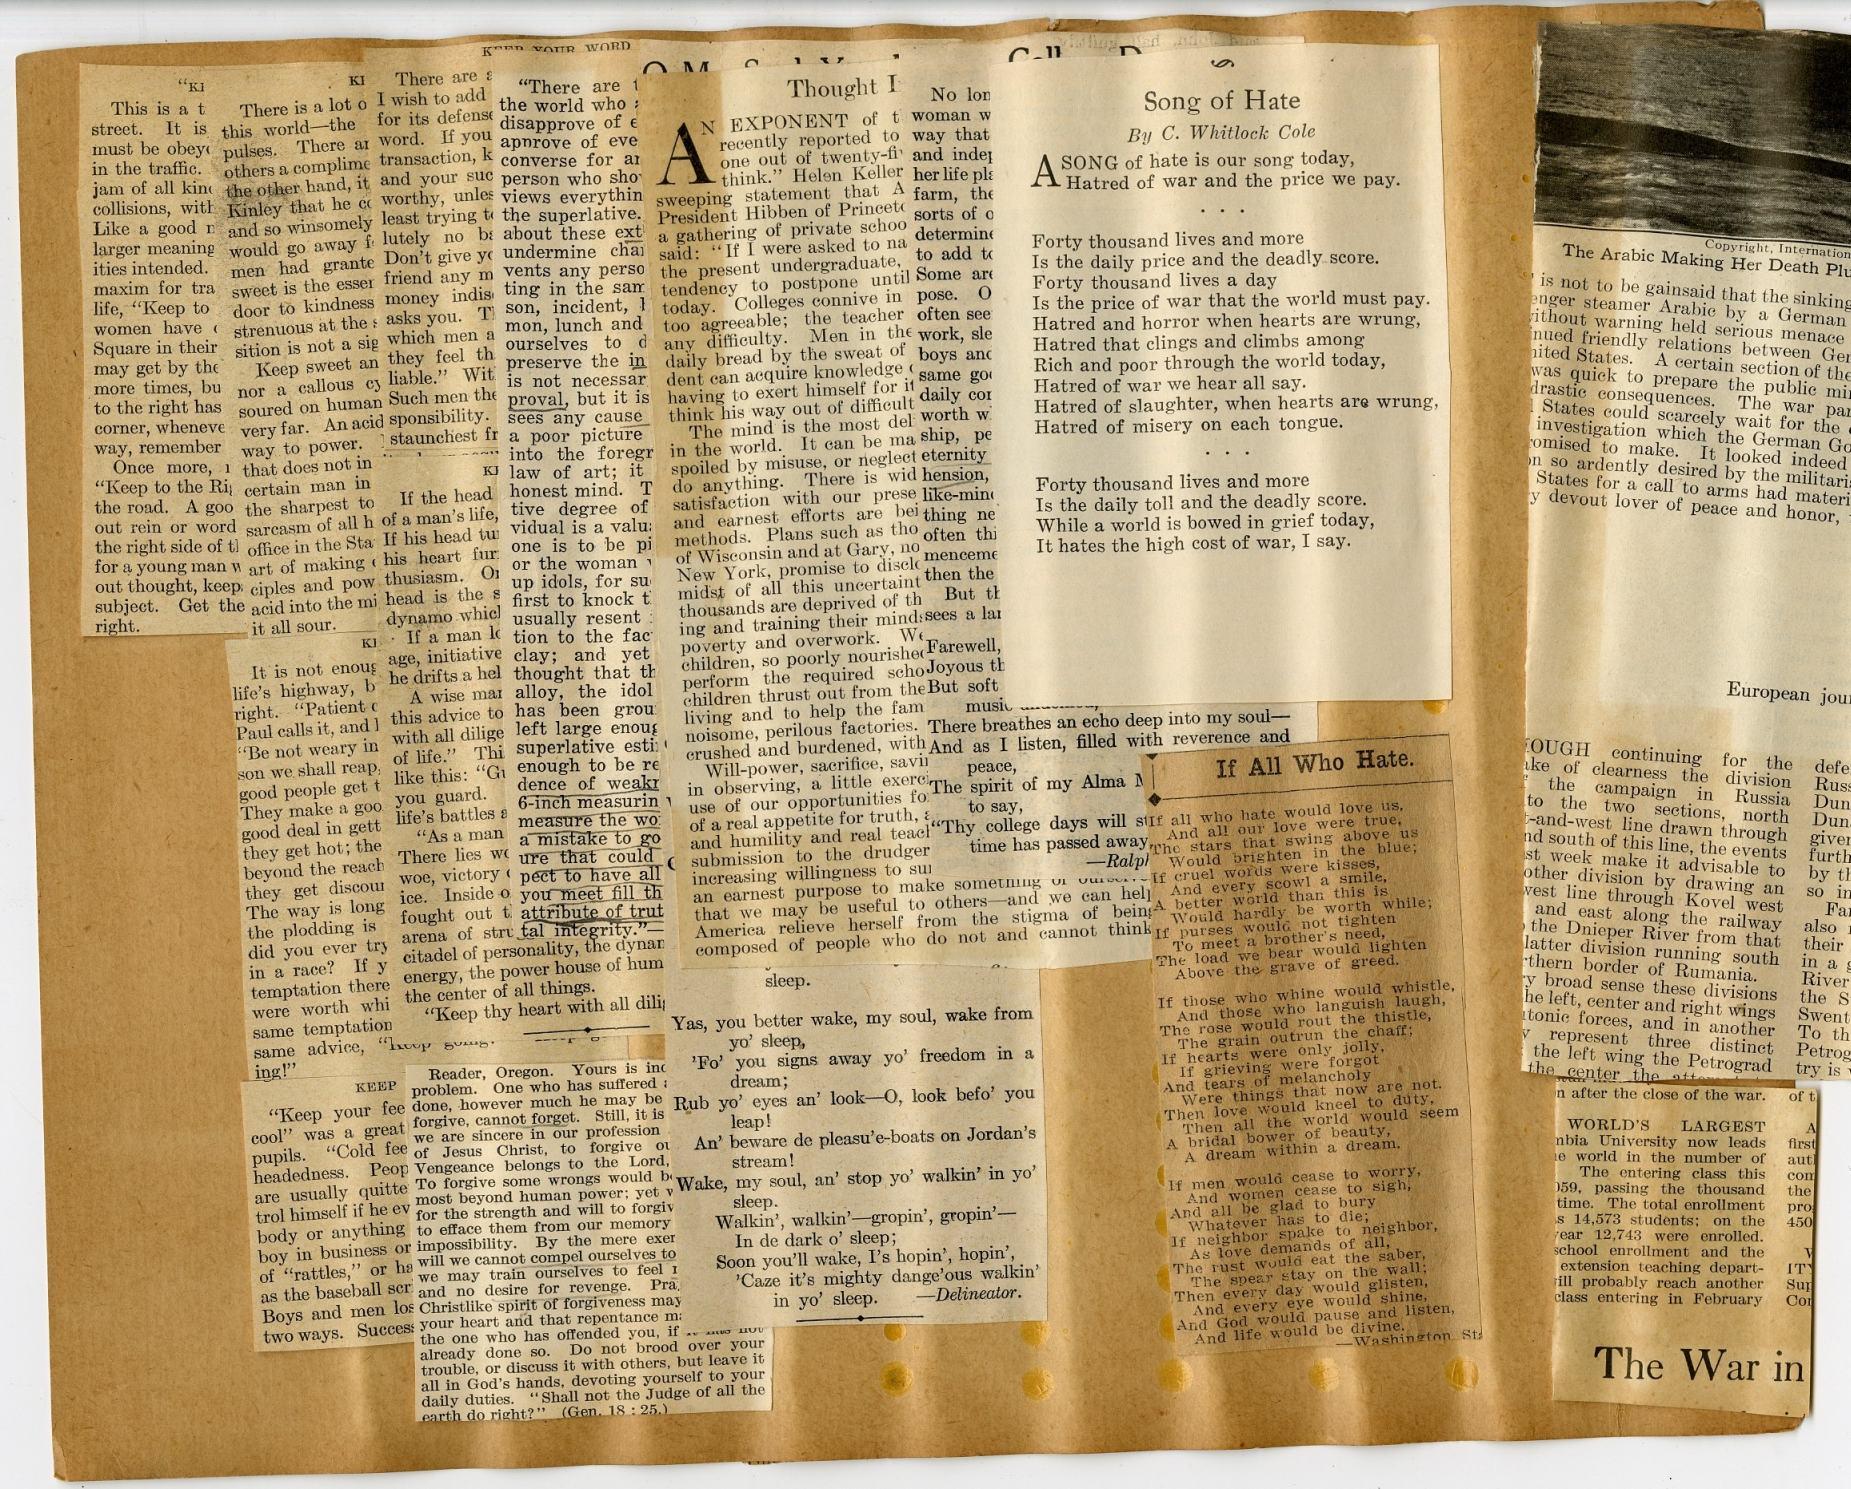 "KI
This is a t
street. It is
must be obey
in the traffic.
jam of all kin
collisions, with
Like a good
larger meaning
ities intended.
maxim for tra
life, "Keep to
women have
Square in their
may get by the
more times, bu
to the right has
corner, wheneve
way, remember
Once more,
"Keep to the Rig
the road. A goo
out rein or word
the right side of tl
for a young man w
out thought, keep
subject. Get the
right.
KI
There is a lot o
this world—the
pulses. There ar
others a complime
the other hand, it
Kinley that he co
and so winsomely
would go away f
men had grante
sweet is the esser
door to kindness
strenuous at the s
sition is not a sig
Keep sweet an
nor a callous cy
soured on human
very far. An acid
way to power.
that does not in
certain man in
the sharpest to
sarcasm of all h
office in the Sta
art of making
ciples and pow
acid into the mi
it all sour.
KI
It is not enoug
life's highway, b
right. "Patient c
Paul calls it, and l
"Be not weary in
son we shall reap,
good people get t
They make a goo
good deal in gett
they get hot; the
beyond the reach
they get discou
The way is long
the plodding is
did you ever try
in a race? If y
temptation there
were worth whi
same temptation
same advice, "Keep going.
ing!"
KEEP
"Keep your fee
cool" was a great
pupils. "Cold fee
headedness. Peop
are usually quitte
trol himself if he ev
body or anything
boy in business or
of "rattles," or ha
as the baseball scr
Boys and men los
two ways. Success
KEEP YOUR WORD
There are a
I wish to add
for its defense
word. If you
transaction, k
and your suc
worthy, unles
least trying to
lutely no ba
Don't give yo
friend any m
money indis
asks you. T
which men a
they feel th
liable." Wit
Such men the
sponsibility.
staunchest fr
KI
If the head
of a man's life,
If his head tu
his heart fur
thusiasm. On
head is the s
dynamo whic
If a man lo
age, initiative
he drifts a hel
A wise mar
this advice to
with all dilige
of life." Thi
like this: "Gu
you guard.
life's battles a
"As a man
There lies wo
woe, victory
ice. Inside o
fought out t
arena of stru
citadel of personality, the dynar
energy, the power house of hum
the center of all things.
"Keep thy heart with all dilig
"There are t
the world who a
disapprove of e
approve of eve
converse for an
person who sho
views everythin
the superlative.
about these ext
undermine cha
vents any perso
ting in the san
son, incident, l
mon, lunch and
ourselves to d
preserve the in
is not necessar
proval, but it is
sees any cause
a poor picture
into the foregr
law of art; it
honest mind. T
tive degree of
vidual is a valu
one is to be pi
or the woman
up idols, for su
first to knock t
usually resent
tion to the fac
clay; and yet
thought that th
alloy, the idol
has been grou
left large enoug
superlative esti
enough to be re
dence of weakn
6-inch measurin
measure the wo
a mistake to go
ure that could
pect to have all
you meet fill th
attribute of trut
tal integrity."—
Reader, Oregon. Yours is inc
problem. One who has suffered
done, however much he may be
forgive, cannot forget. Still, it is
we are sincere in our profession
of Jesus Christ, to forgive ou
Vengeance belongs to the Lord,
To forgive some wrongs would be
most beyond human power; yet
for the strength and will to forgiv
to efface them from our memory
impossibility. By the mere exer
will we cannot compel ourselves to
we may train ourselves to feel
and no desire for revenge. Pra
Christlike spirit of forgiveness may
your heart and that repentance m
the one who has offended you, if it has not
already done so. Do not brood over your
trouble, or discuss it with others, but leave it
all in God's hands, devoting yourself to your
daily duties. "Shall not the Judge of all the
earth do right?" (Gen. 18 : 25.)
Thought I
AN EXPONENT of t
recently reported to
one out of twenty-fi
think." Helen Keller
sweeping statement that A
President Hibben of Princeto
a gathering of private schoo
said: "If I were asked to na
the present undergraduate,
tendency to postpone until
today. Colleges connive in
too agreeable; the teacher
any difficulty. Men in the
daily bread by the sweat of
dent can acquire knowledge
having to exert himself for it
think his way out of difficult
The mind is the most del
in the world. It can be ma
spoiled by misuse, or neglect
do anything. There is wid
satisfaction with our prese
and earnest efforts are bei
methods. Plans such as tho
of Wisconsin and at Gary, no
New York, promise to disclo
midst of all this uncertaint
thousands are deprived of th
ing and training their minds
poverty and overwork. We
children, so poorly nourishe
perform the required scho
children thrust out from the
living and to help the fam
noisome, perilous factories.
crushed and burdened, with
Will-power, sacrifice, savin
in observing, a little exerc
use of our opportunities fo
of a real appetite for truth,
and humility and real teacl
submission to the drudger
increasing willingness to sur
an earnest purpose to make something of ourselve
that we may be useful to others—and we can help
America relieve herself from the stigma of being
composed of people who do not and cannot think
sleep.
Yas, you better wake, my soul, wake from
yo' sleep,
'Fo' you signs away yo' freedom in a
dream;
Rub yo' eyes an' look—O, look befo' you
leap!
An' beware de pleasu'e-boats on Jordan's
stream!
Wake, my soul, an' stop yo' walkin' in yo'
sleep.
Walkin', walkin'—gropin', gropin'—
In de dark o' sleep;
Soon you'll wake, I's hopin', hopin',
'Caze it's mighty dange'ous walkin'
in yo' sleep. —Delineator.
No lon
woman w
way that
and indep
her life pla
farm, the
sorts of o
determine
to add to
Some are
pose. O
often see
work, sle
boys and
same goo
daily cor
worth w
ship, pe
eternity
hension,
like-mind
thing ne
often thi
menceme
then the
But th
sees a lar
Farewell,
Joyous th
But soft
music
There breathes an echo deep into my soul—
And as I listen, filled with reverence and
peace,
The spirit of my Alma M
to say,
"Thy college days will st
time has passed away
—Ralph
Song of Hate
By C. Whitlock Cole
A SONG of hate is our song today,
Hatred of war and the price we pay.
. . .
Forty thousand lives and more
Is the daily price and the deadly score.
Forty thousand lives a day
Is the price of war that the world must pay.
Hatred and horror when hearts are wrung,
Hatred that clings and climbs among
Rich and poor through the world today,
Hatred of war we hear all say.
Hatred of slaughter, when hearts are wrung,
Hatred of misery on each tongue.
. . .
Forty thousand lives and more
Is the daily toll and the deadly score.
While a world is bowed in grief today,
It hates the high cost of war, I say.
If All Who Hate.
If all who hate would love us,
And all our love were true,
The stars that swing above us
Would brighten in the blue;
If cruel words were kisses,
And every scowl a smile,
A better world than this is
Would hardly be worth while;
If purses would not tighten
To meet a brother's need,
The load we bear would lighten
Above the grave of greed.
If those who whine would whistle,
And those who languish laugh,
The rose would rout the thistle,
The grain outrun the chaff;
If hearts were only jolly,
If grieving were forgot
And tears of melancholy
Were things that now are not.
Then love would kneel to duty,
Then all the world would seem
A bridal bower of beauty,
A dream within a dream.
If men would cease to worry,
And women cease to sigh,
And all be glad to bury
Whatever has to die;
If neighbor spake to neighbor,
As love demands of all,
The rust would eat the saber,
The spear stay on the wall;
Then every day would glisten,
And every eye would shine,
And God would pause and listen,
And life would be divine.
—Washington St
Copyright, Internation
The Arabic Making Her Death Plu
is not to be gainsaid that the sinking
enger steamer Arabic by a German
ithout warning held serious menace
nued friendly relations between Ger
nited States. A certain section of the
was quick to prepare the public min
drastic consequences. The war par
States could scarcely wait for the
investigation which the German Go
omised to make. It looked indeed
n so ardently desired by the militaris
States for a call to arms had materi
y devout lover of peace and honor,
European jour
OUGH continuing for the
ake of clearness the division
f the campaign in Russia
to the two sections, north
t-and-west line drawn through
nd south of this line, the events
st week make it advisable to
other division by drawing an
west line through Kovel west
and east along the railway
the Dnieper River from that
latter division running south
thern border of Rumania.
y broad sense these divisions
he left, center and right wings
utonic forces, and in another
y represent three distinct
the left wing the Petrograd
the center the
defe
Russ
Dun
Dun
given
furth
by th
so in
Fa
also
their
in a g
River
the S
Swent
To th
Petrog
try is
n after the close of the war.
WORLD'S LARGEST
mbia University now leads
e world in the number of
The entering class this
059, passing the thousand
time. The total enrollment
s 14,573 students; on the
year 12,743 were enrolled.
school enrollment and the
extension teaching depart-
ill probably reach another
class entering in February
of t
A
first
aut
com
the
pro
450
ITY
Sup
Cor
The War in